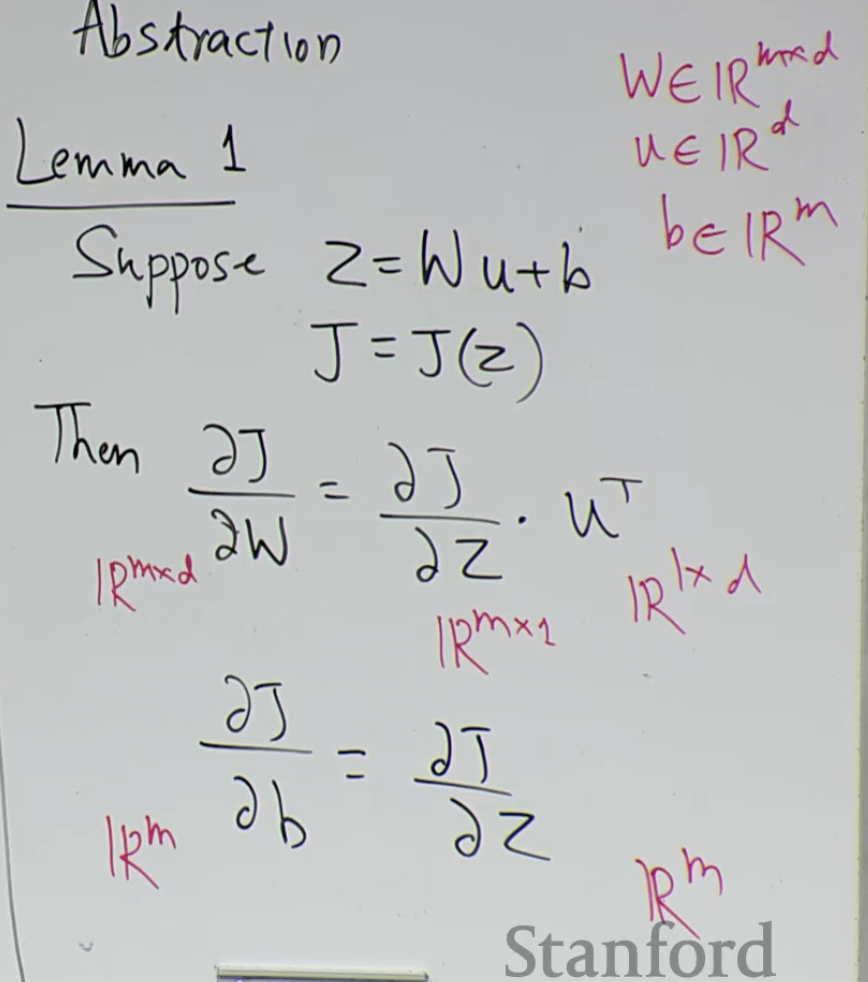 Abstraction
W∈ℝ^{m×d}
u∈ℝ^d
b∈ℝ^m
Lemma 1
Suppose z = Wu+b
J = J(z)
Then ∂J/∂W = ∂J/∂z · u^T
ℝ^{m×d} ℝ^{m×1} ℝ^{1×d}
∂J/∂b = ∂J/∂z
ℝ^m ℝ^m
Stanford